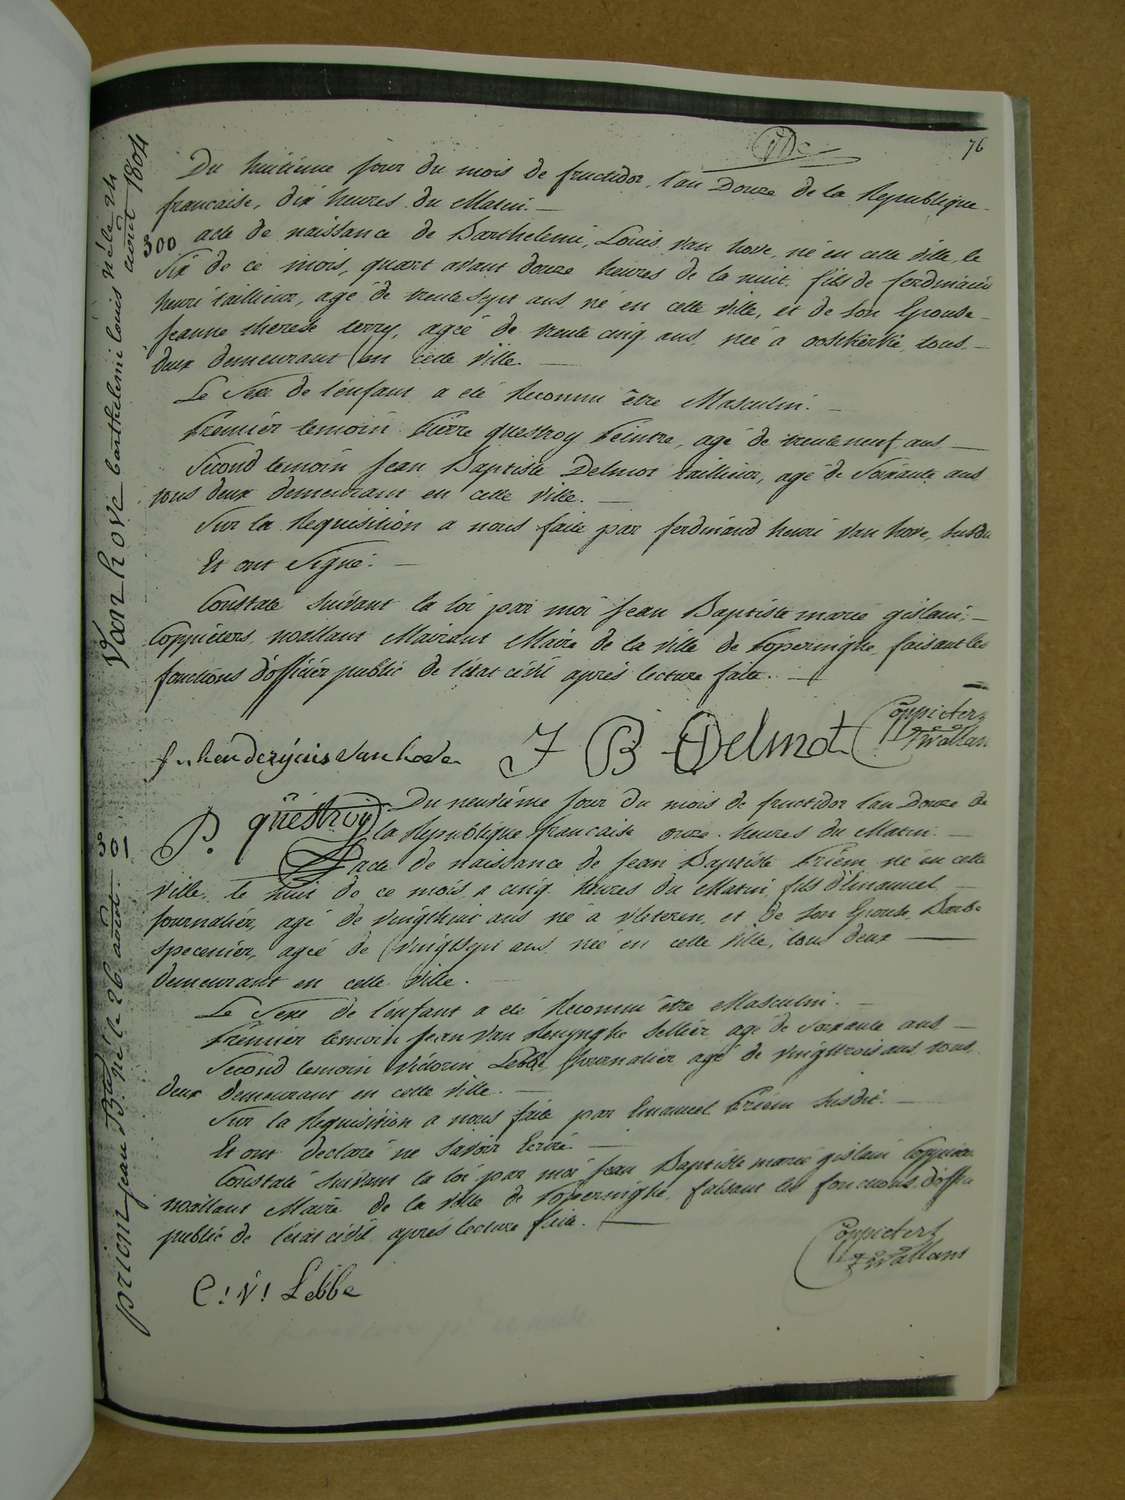 76
Du huitieme jour du mois de fructidor, l'an Douze de la Republique
francaise, dix heures du Matin.
300 acte de naissance de Barthelemi Louis van hove, né en cette ville, le
Six de ce mois, quart avant douze heures de la nuit, fils de ferdinand
henri taillieur, agé de trente sept ans né en cette ville, et de son Epouse
Jeanne therese terry, agée de trente cinq ans, née à ooskerke, tous
deux demeurant en cette ville.
Le Sexe de l'enfant a été Reconnu être Masculin.
Premier temoin Pierre questroy Peintre, agé de trente neuf ans
Second temoin Jean Baptiste Delmot taillieur, agé de Soixante ans
tous deux demeurant en cette ville.
Sur la Requisition a nous faite par ferdinand henri van hove, susdit
Et ont Signé.
Constaté suivant la loi par moi Jean Baptiste marie gislain
Coppieters wallant Mairant Maire de la ville de Poperinghe faisant les
fonctions d'officier public de l'état civil après lecture faite.
van hove J B Delmot Coppieters
Wallant
P. questroy
Du neuvième jour du mois de fructidor l'an Douze de
la Republique francaise onze heures du Matin.
301 acte de naissance de Jean Baptiste Priem né en cette
ville, le huit de ce mois a cinq heures du Matin fils d'Emanuel
Journalier, agé de vingthuit ans né à vleteren, et de son Epouse, Barbe
specenier, agée de vingtsept ans née en cette ville, tous deux
demeurant en cette ville.
Le Sexe de l'enfant a été Reconnu être Masculin.
Premier temoin Jean van Renynghe Sellier agé de Soixante ans
Second temoin Victorin Lebbe Journalier agé de vingttrois ans tous
deux demeurant en cette ville.
Sur la Requisition a nous faite par Emanuel Priem susdit.
Et ont declaré ne savoir Ecrire
Constaté suivant la loi par moi Jean Baptiste marie gislain Coppieters
wallant Maire de la ville de Poperinghe, faisant les fonctions d'officier
public de l'état civil après lecture faite.
Coppieters
Wallant
C: V: Lebbe
Van hove barthelemi louis né le 24
août 1804
priem jean Bte né le 26 août